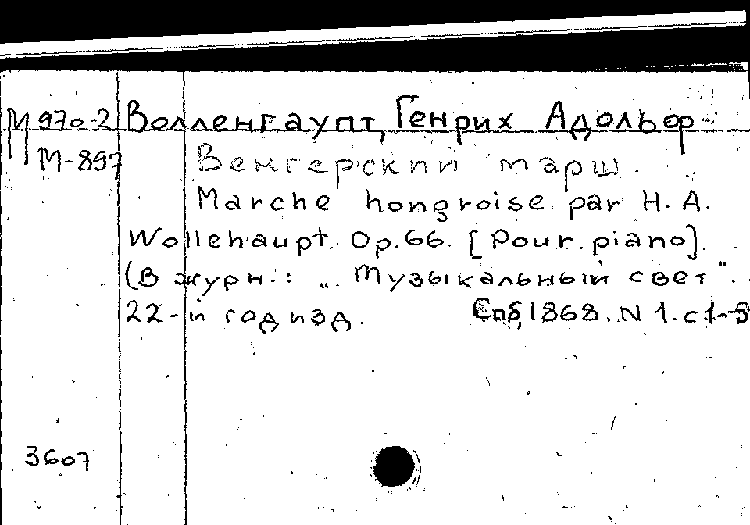 М 970-2 Волленгаупт, Генрих Адольф
М-897 Венгерский марш.
Marche hongroise par H. A.
Wollehaupt. Op. 66. [Pour piano].
(В журн.: „Музыкальный свет".
22-й год изд. Спб, 1868. N 1. с 1-8
3607